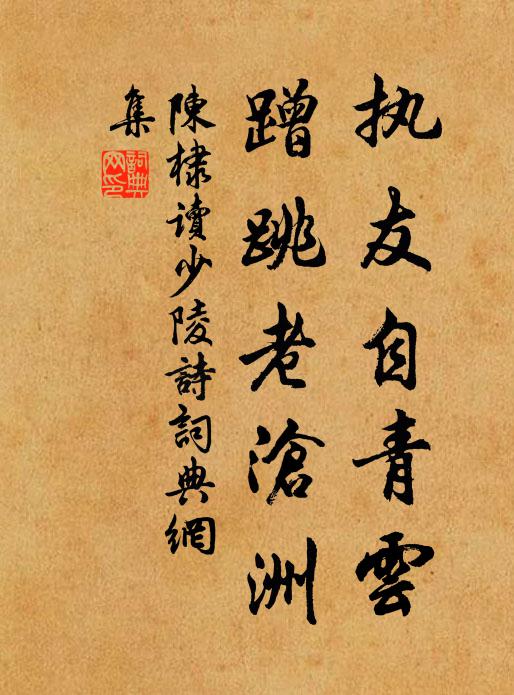 执友自青雲
蹭跳老滄洲
陳棣讀少陵詩詞典網
集
詞典網印